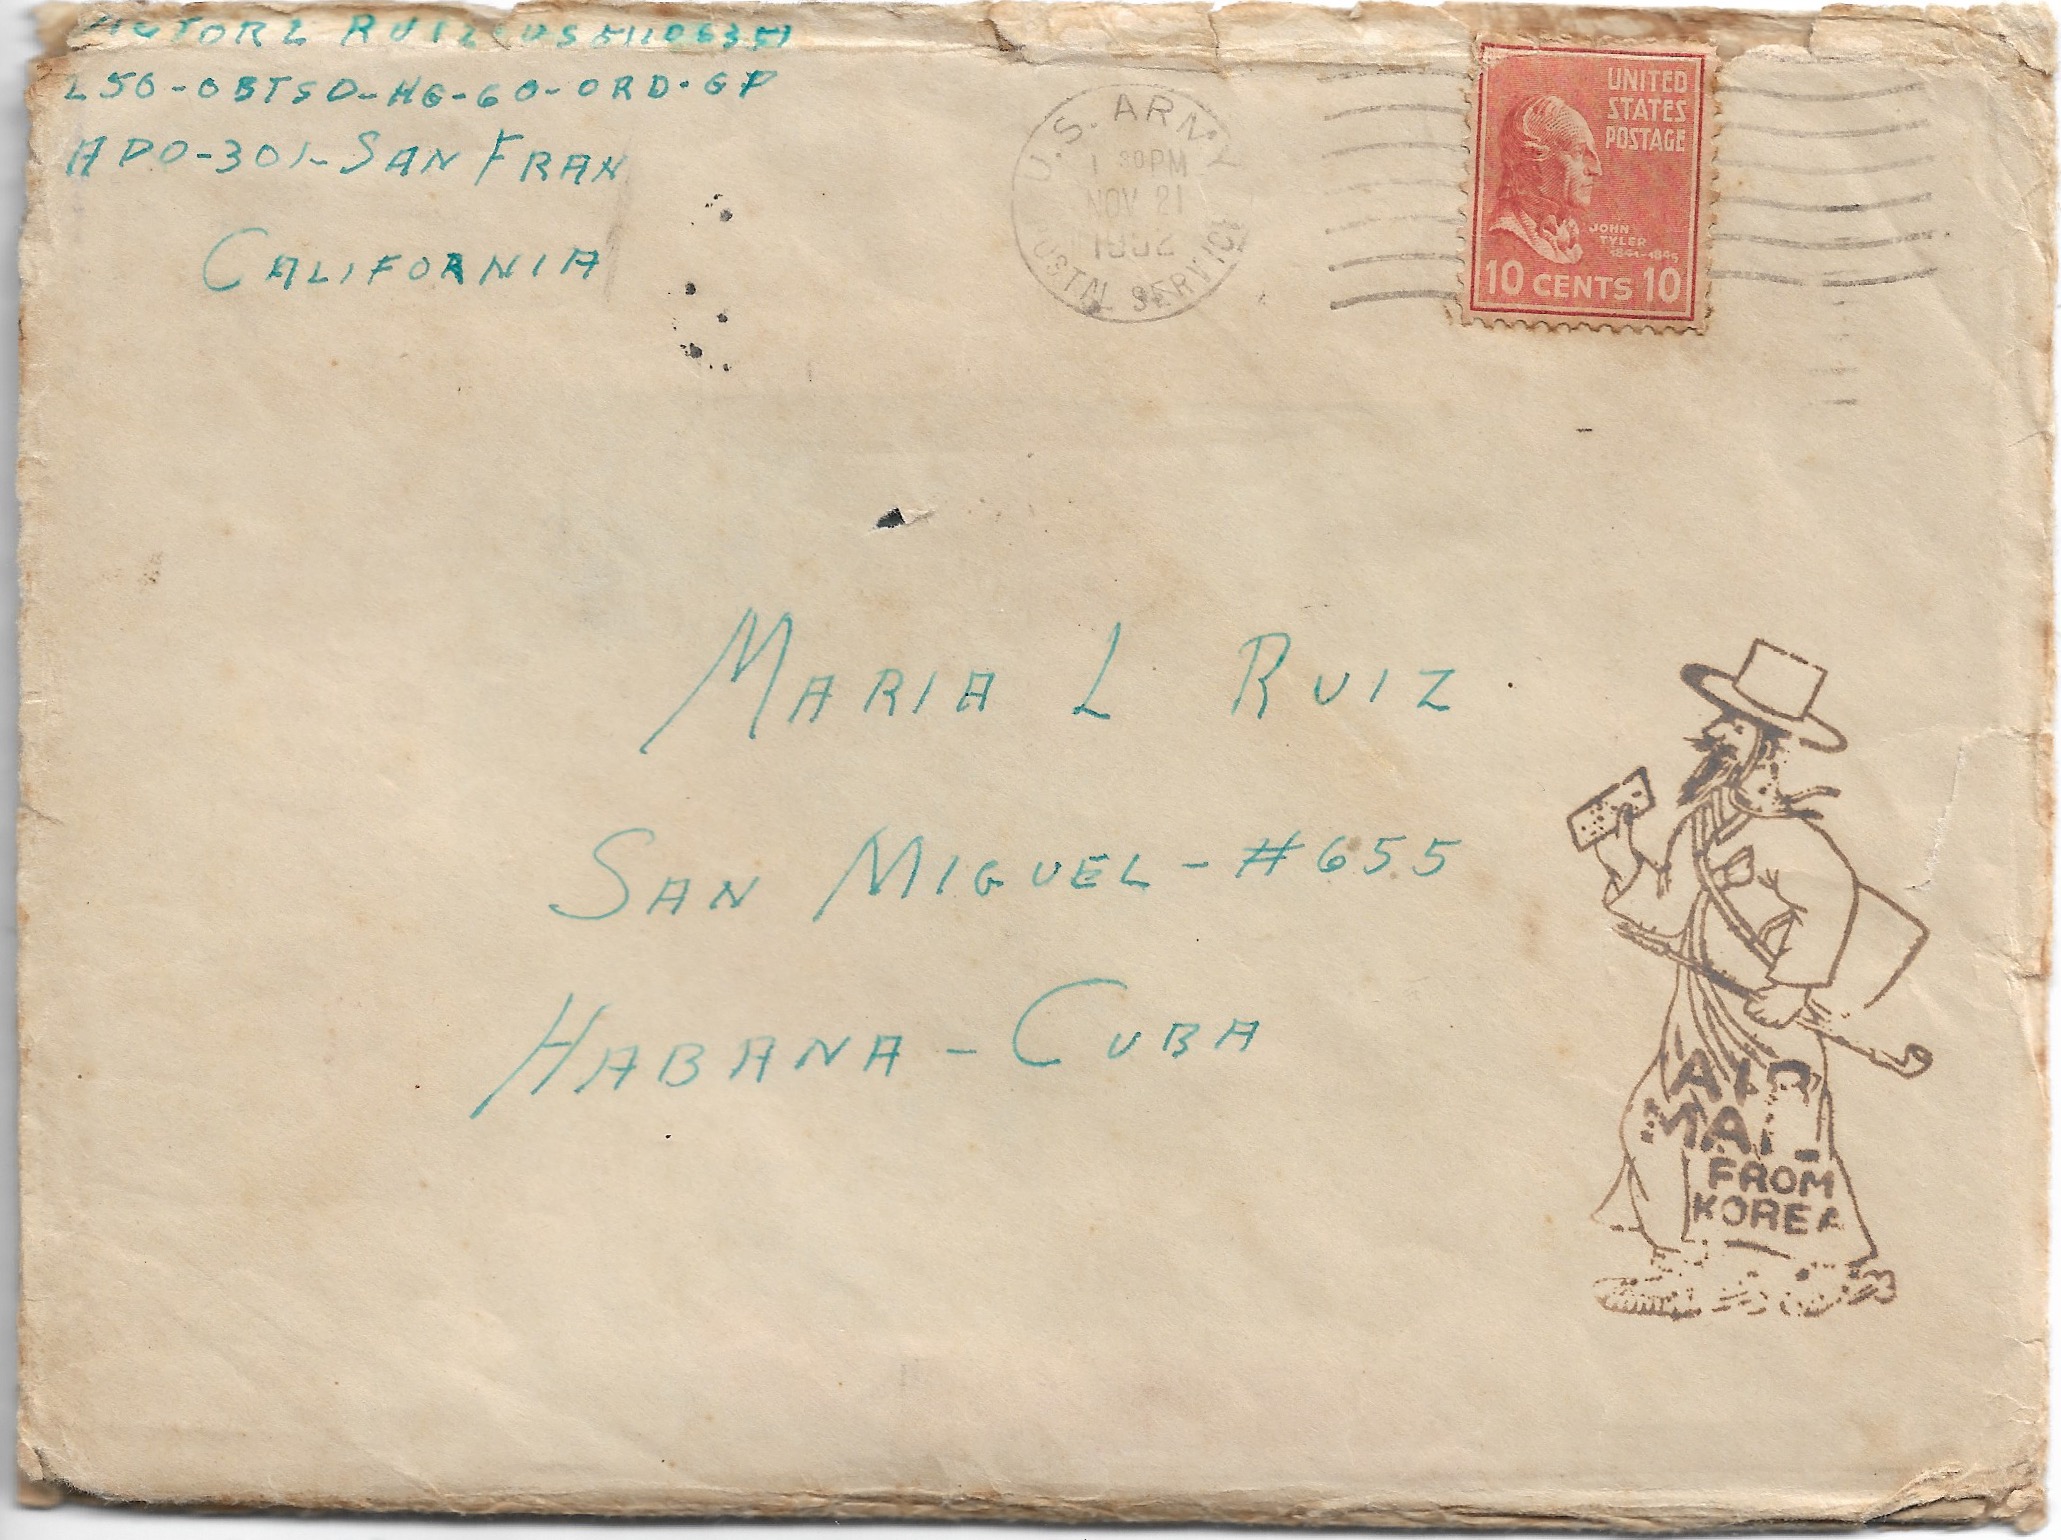 RUIZ
L56-OBTSD-HG-60-ORD-GP
APO-301-SAN FRAN
CALIFORNIA
U.S. ARMY
1 30PM
NOV 21
1952
POSTAL SERVICE
UNITED
STATES
POSTAGE
JOHN
TYLER
1841-1845
10 CENTS 10
MARIA L RUIZ
SAN MIGUEL-#655
HABANA-CUBA
AIR
MAIL
FROM
KOREA